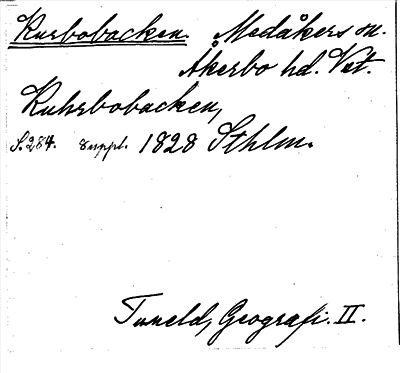 Kurbobacken. Medåkers sn.
Åkerbo hd. Vst.
Kuhrbobacken,
S. 284. suppl. 1828 Sthlm.
Tuneld, Geografi. II.